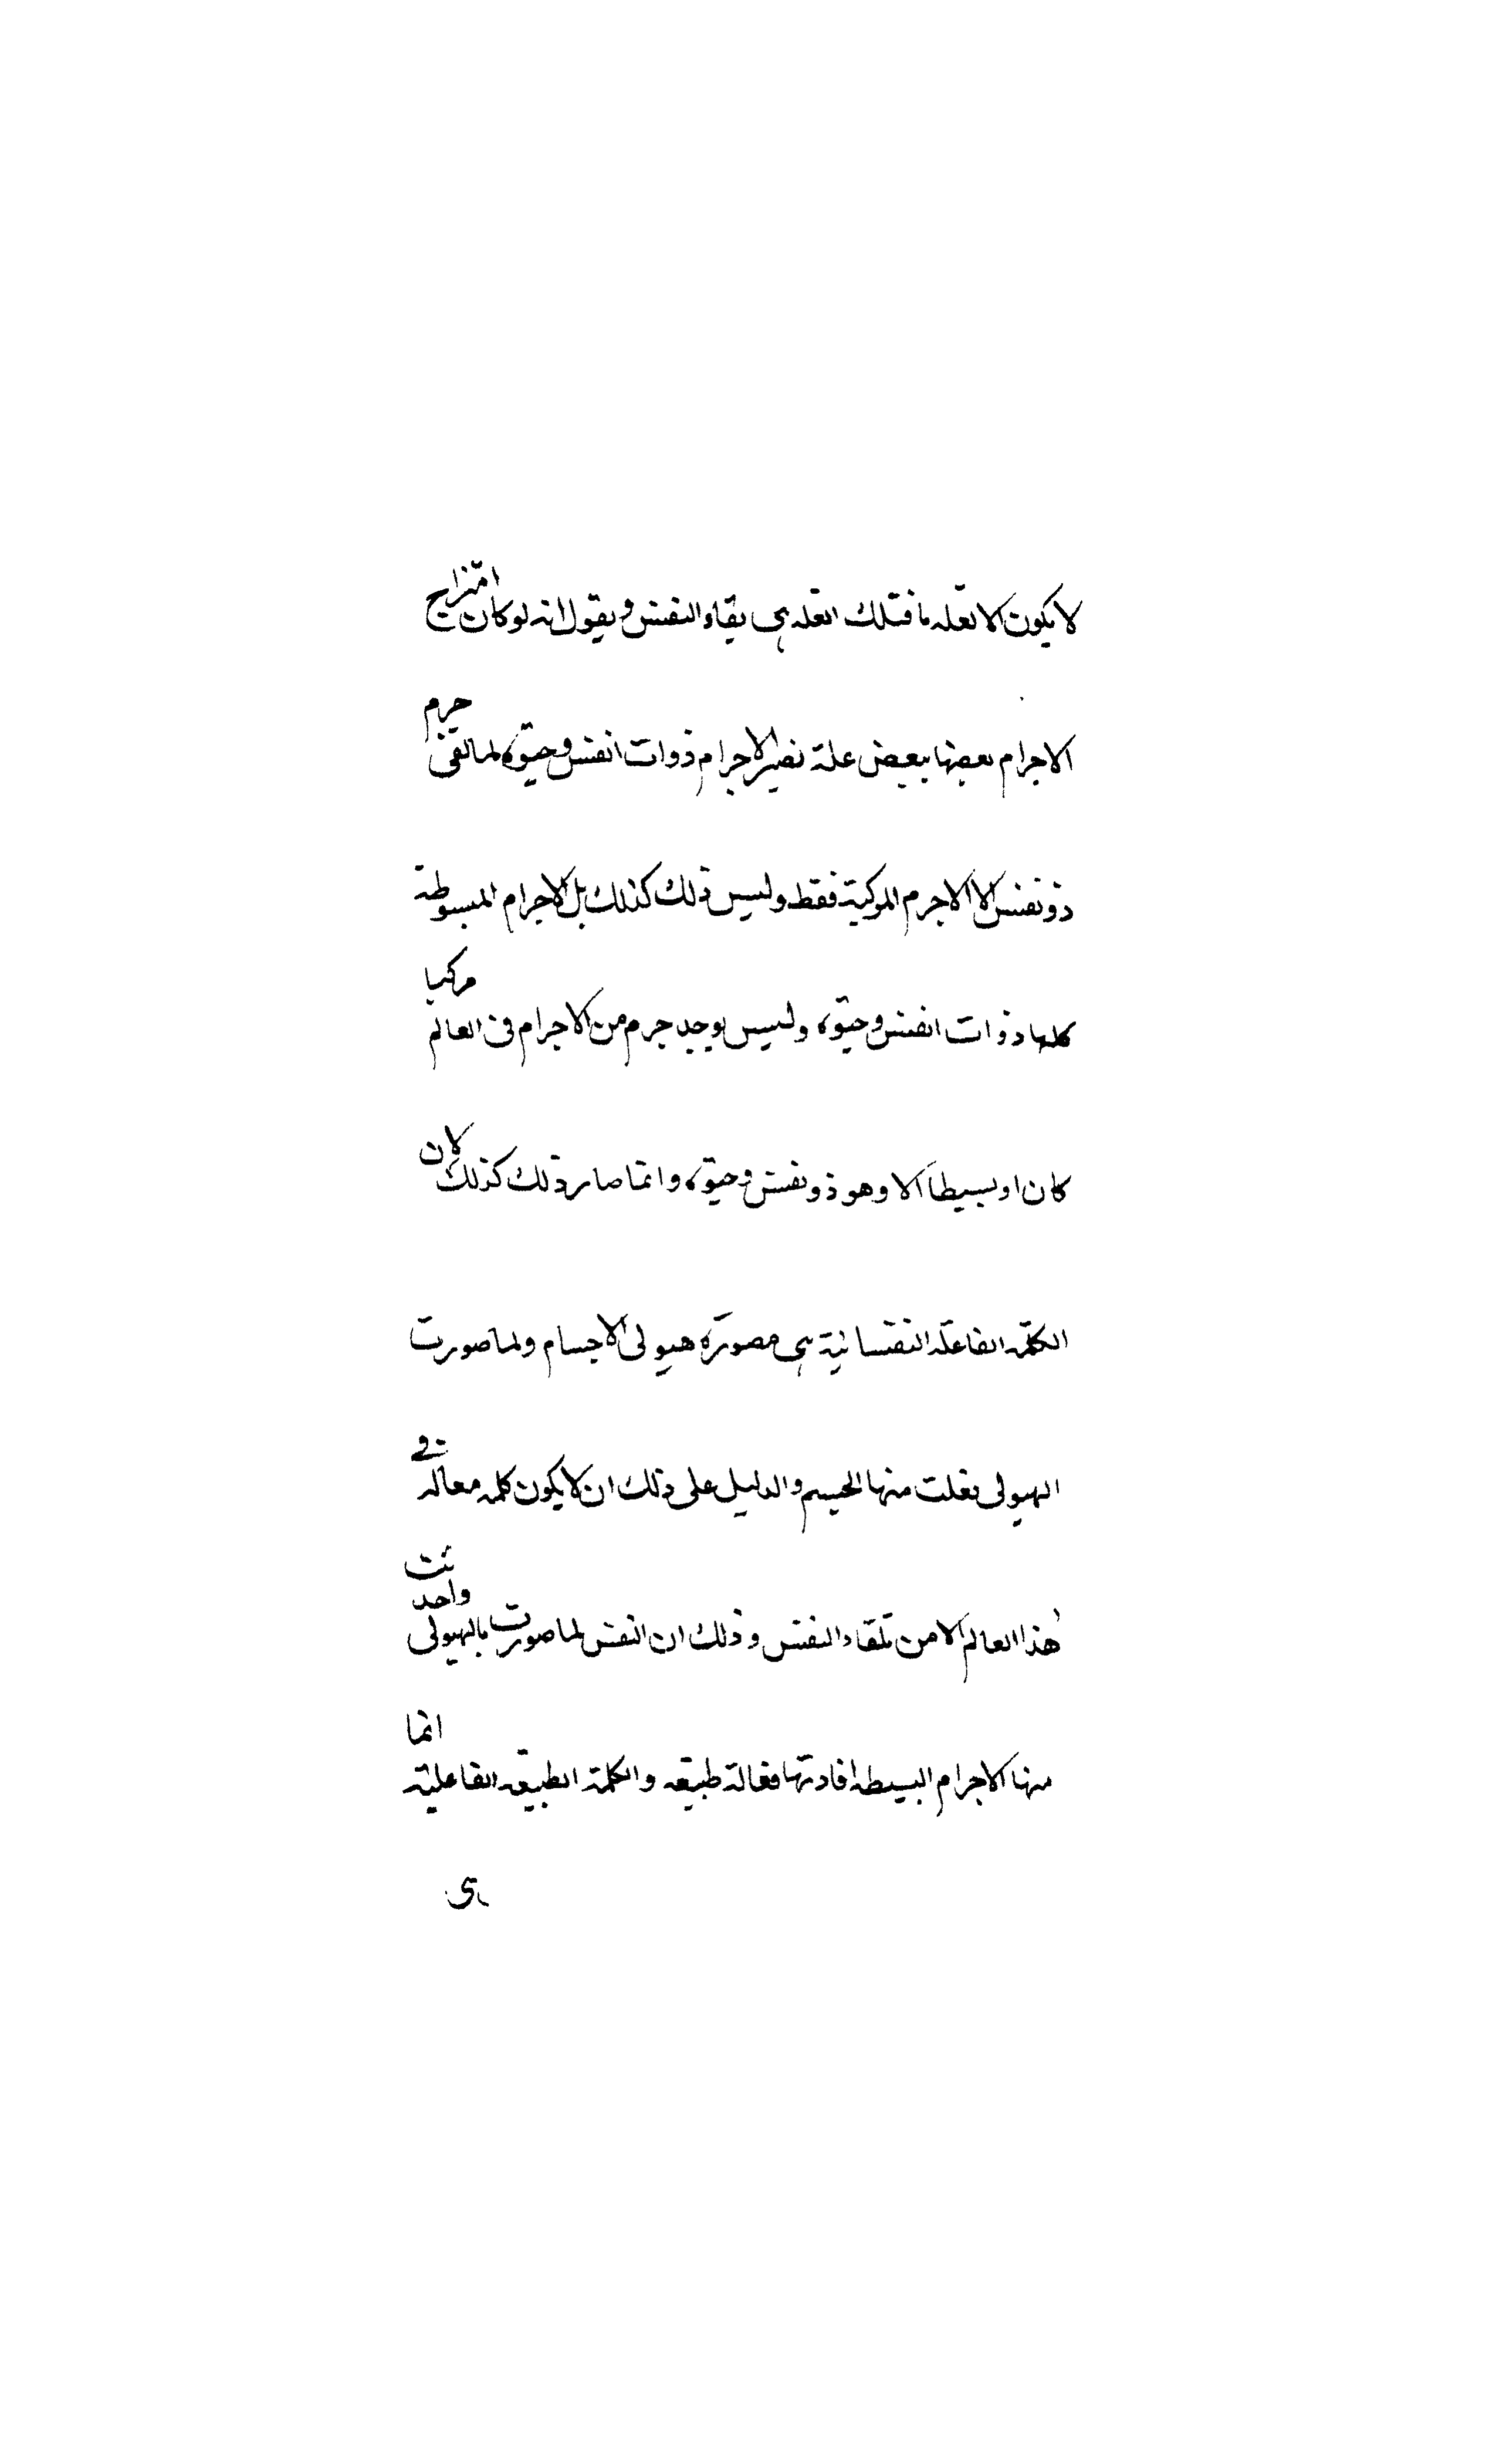 لا يكون الا بعله ما فتلك العله هى بقاء النفس ويقول انه لو كان امتزاج
الاجرام بعضها ببعض علة نصير الاجرام ذوات انفس وحيوة لما القى جرم
ذو نفس الا الاجرم المركبة فقط وليس ذلك كذلك بل الاجرام المبسوطة
كلها ذوات انفس وحيوة وليس يوجد جرم من الاجرام فى العالم مركبا
كان او بسيطا الا وهو ذو نفس وحيوة وانما صار ذلك كذلك لان
الكلمة الفاعلة النفسانية هى مصورة هيولى الاجسام ولما صورت
الهيولى فعلت منها الجسم والدليل على ذلك ان لا يكون كلمه معاله فى
هذا العالم الا من تلقاء النفس وذلك ان النفس لما صورت بالهيولى واحد ثت
منها الاجرام البسيطه افادتها فعالة طبيعه والكلمة الطبيعه الفاعلية انما
هى